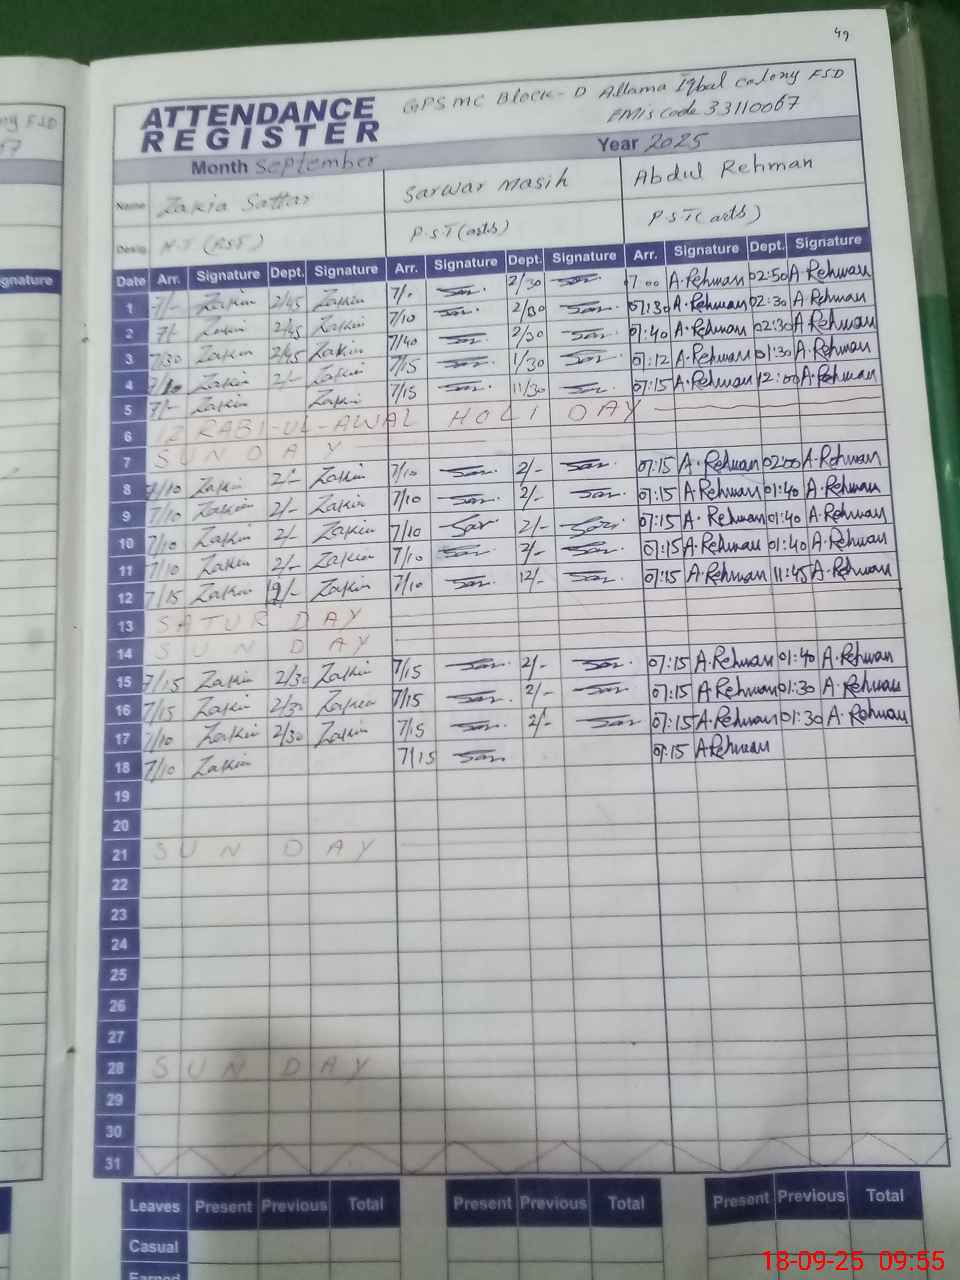 49
ATTENDANCE REGISTER
GPS MC Block-D Allama Iqbal Colony FSD
EMis Code 33110067
Month September Year 2025
Name Zakia Sattar Sarwar Masih Abdul Rehman
Desig. P.S.T(arts) P.S.T(arts)
Date Arr. Signature Dept. Signature Arr. Signature Dept. Signature Arr. Signature Dept. Signature
1 7/- Zakia 2/45 Zakia 7/- 2/30 7:00 A.Rehman 02:50 A.Rehman
2 7/- Zakia 2/45 Zakia 7/10 2/30 07:30 A.Rehman 02:30 A.Rehman
3 7/30 Zakia 2/45 Zakia 7/40 2/30 07:40 A.Rehman 02:30 A.Rehman
4 7/10 Zakia 2/- Zakia 7/15 1/30 07:12 A.Rehman 01:30 A.Rehman
5 7/- Zakia Zakia 7/15 11/30 07:15 A.Rehman 12:00 A.Rehman
6 12 RABI-UL-AWAL HOLIDAY
7 SUNDAY
8 7/10 Zakia 2/- Zakia 7/10 2/- 07:15 A.Rehman 02:00 A.Rehman
9 7/10 Zakia 2/- Zakia 7/10 2/- 07:15 A.Rehman 01:40 A.Rehman
10 7/10 Zakia 2/- Zakia 7/10 2/- 07:15 A.Rehman 01:40 A.Rehman
11 7/10 Zakia 2/- Zakia 7/10 2/- 07:15 A.Rehman 01:40 A.Rehman
12 7/15 Zakia Zakia 7/10 12/- 07:15 A.Rehman 11:45 A.Rehman
13 SATURDAY
14 SUNDAY
15 7/15 Zakia 2/30 Zakia 7/15 2/- 07:15 A.Rehman 01:40 A.Rehman
16 7/15 Zakia 2/30 Zakia 7/15 2/- 07:15 A.Rehman 01:30 A.Rehman
17 7/10 Zakia 2/30 Zakia 7/15 2/- 07:15 A.Rehman 01:30 A.Rehman
18 7/10 Zakia 7/15 07:15 A.Rehman
19
20
21 SUNDAY
22
23
24
25
26
27
28 SUNDAY
29
30
31
Leaves Present Previous Total Present Previous Total Present Previous Total
Casual
Earned
18-09-25 09:55